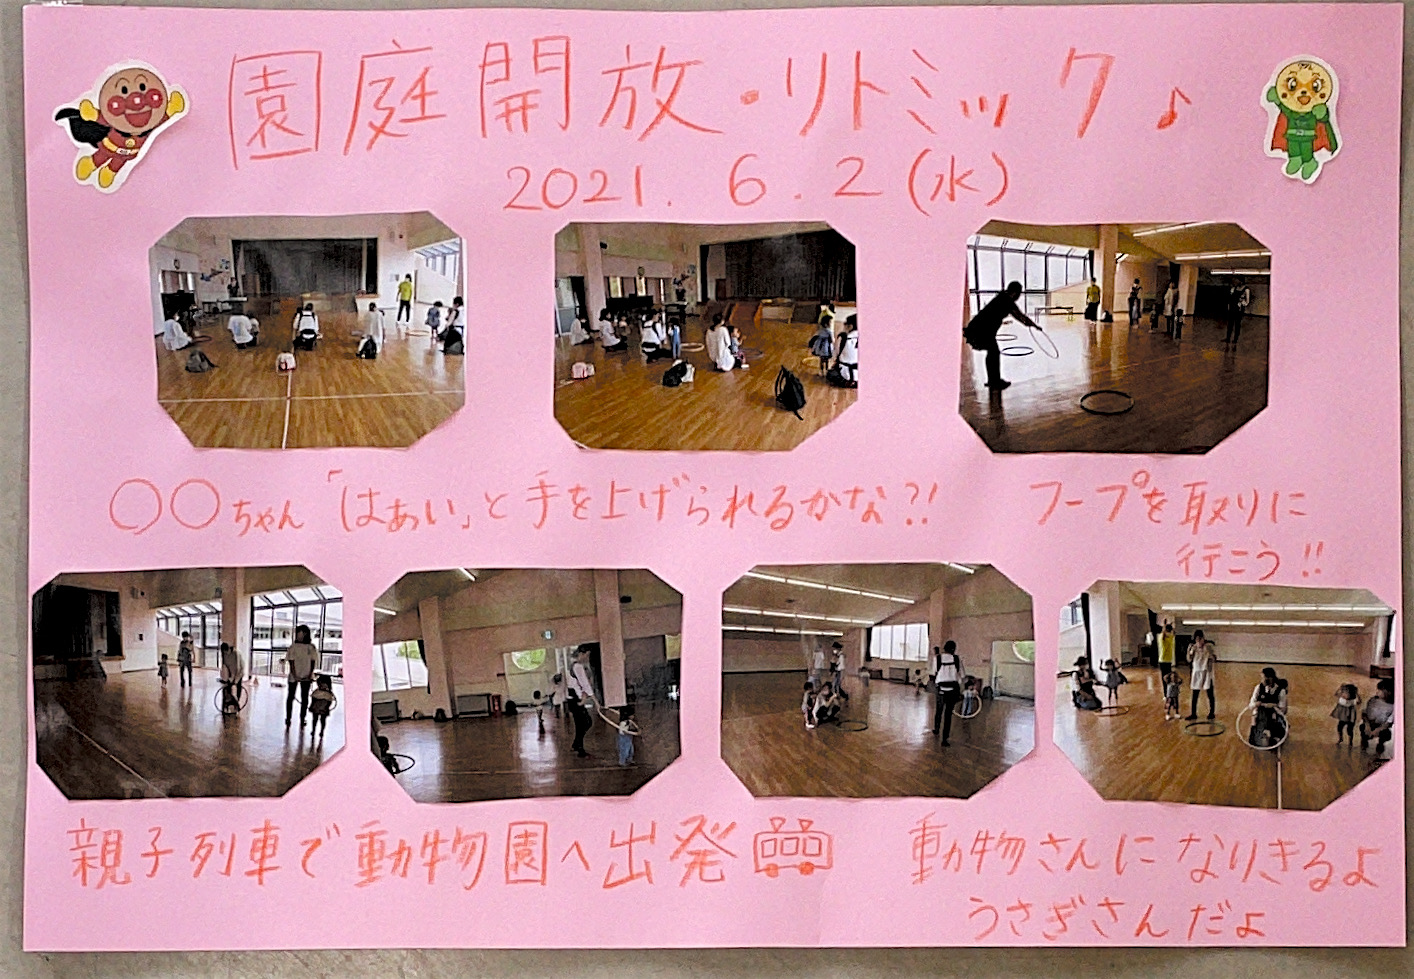 園庭開放・リトミック♪
2021.6.2(水)
○○ちゃん「はぁい」と手を上げられるかな?!
フープを取りに
行こう!!
親子列車で動物園へ出発
動物さんになりきるよ
うさぎさんだよ